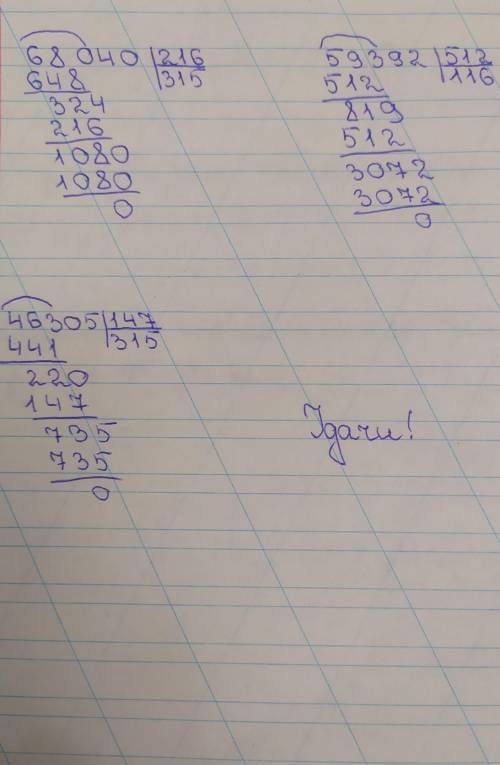 68040 216
648 315
324
216
1080
1080
0
59392 512
512 116
819
512
3072
3072
0
46305 147
441 315
220
147
735
735
0
Удачи!